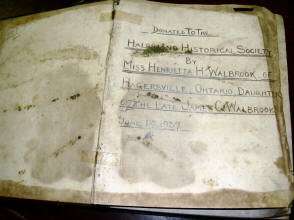 DONATED TO THE
HALDIMAND HISTORICAL SOCIETY
BY
MISS HENRIETTA H. WALBROOK OF
HAGERSVILLE, ONTARIO, DAUGHTER
OF THE LATE JAMES C. WALBROOK
JUNE 1937